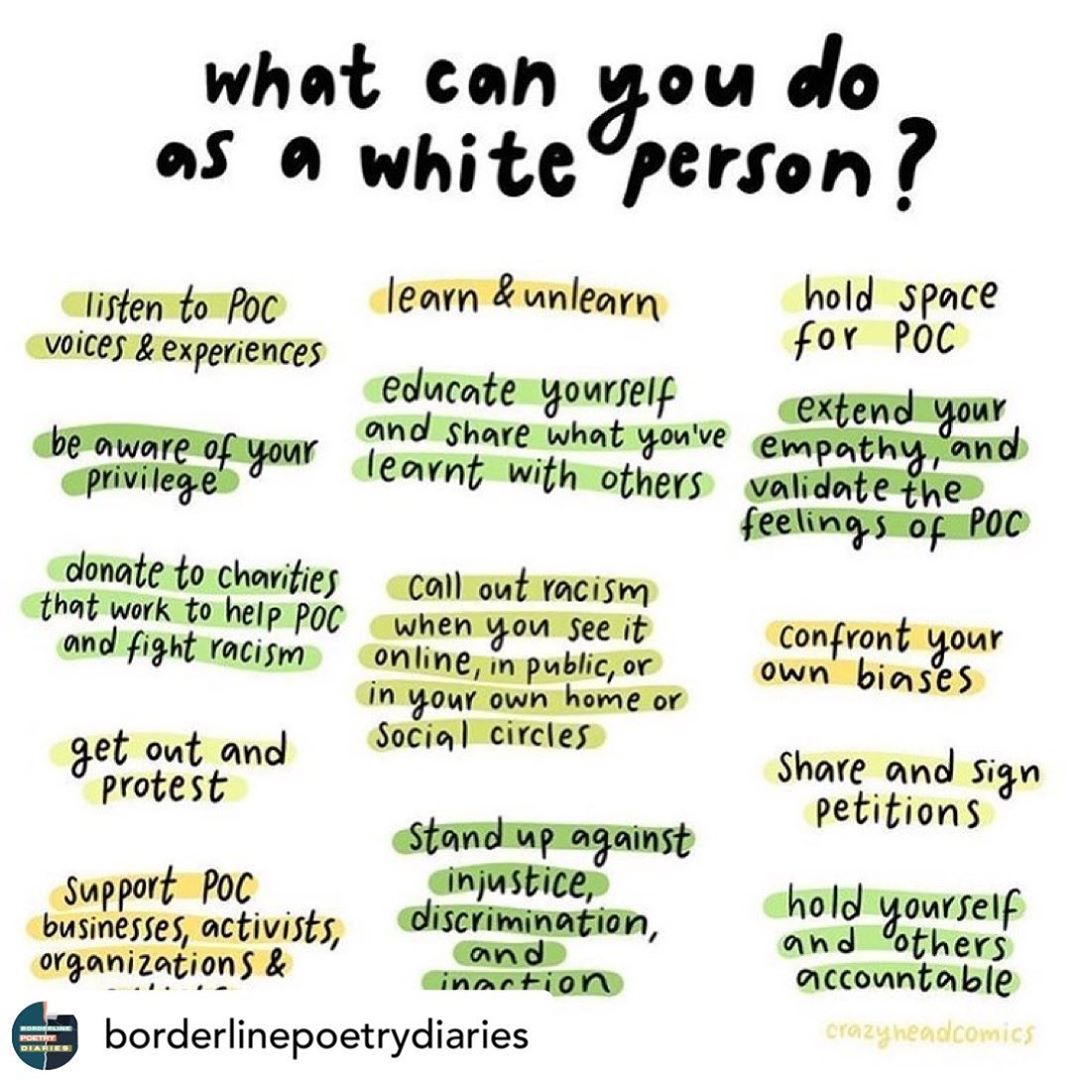 what can you do
as a white person?
listen to POC
voices & experiences
be aware of your
privilege
donate to charities
that work to help POC
and fight racism
get out and
protest
support POC
businesses, activists,
organizations &
learn & unlearn
educate yourself
and share what you've
learnt with others
call out racism
when you see it
online, in public, or
in your own home or
social circles
stand up against
injustice,
discrimination,
and
inaction
hold space
for POC
extend your
empathy, and
validate the
feelings of POC
confront your
own biases
share and sign
petitions
hold yourself
and others
accountable
crazyheadcomics
BORDERLINE
POETRY
DIARIES
borderlinepoetrydiaries